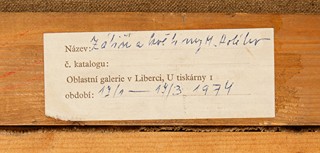 Název: Zátiší a květiny
č. katalogu:
Oblastní galerie v Liberci, U tiskárny 1
období: 17/1 — 17/3 1974